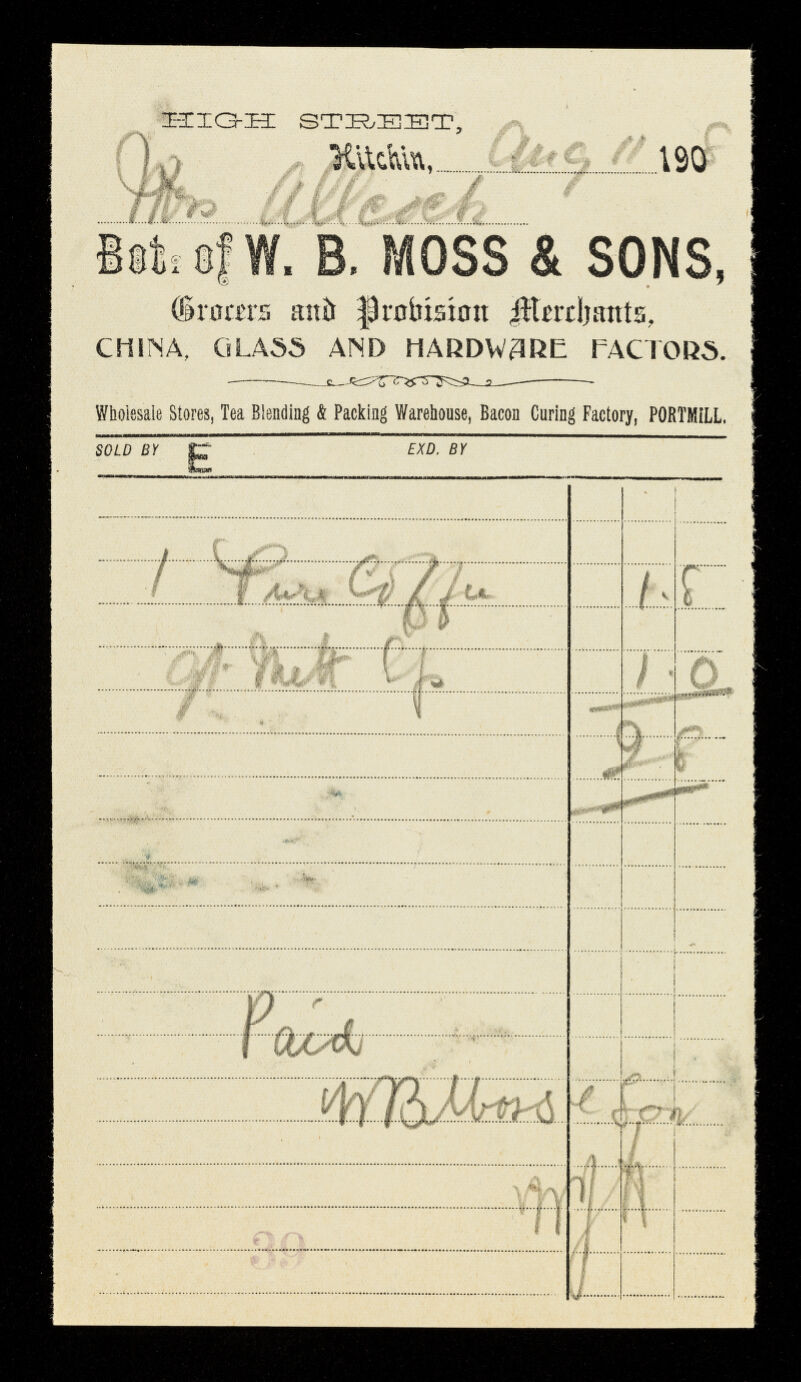 HIGH STREET,
Hitchin, Aug 11 1908
Mrs Allcock
Bot. of W. B. MOSS & SONS,
Grocers and Provision Merchants,
CHINA, GLASS AND HARDWARE FACTORS.
Wholesale Stores, Tea Blending & Packing Warehouse, Bacon Curing Factory, PORTMILL.
SOLD BY E EXD. BY
1 Pure Coffee 1.8
qt. 1.0
2 8
Paid
WB Moss & Son
39